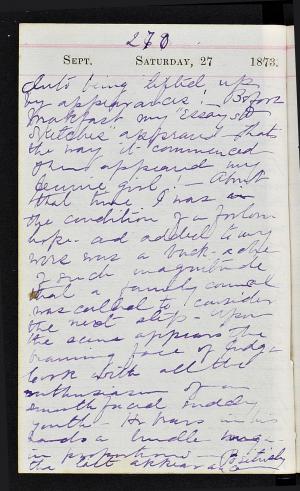 270
SEPT. SATURDAY, 27 1873.
being lifted up
by appearances! — Before
breakfast my "essays &
sketches" appeared — that's
the way it commenced —
then appeared my
girl! — About
that time I was in
the condition of a forlorn
hope — and added to my
woes was a back-ache
of such magnitude
that a family council
was called to consider
the next step — upon
the scene appears the
beaming face of Judge
with all the
enthusiasm of a
smooth faced ruddy
youth — He bears in his
hands a bundle
in proportions —
the latt appearance